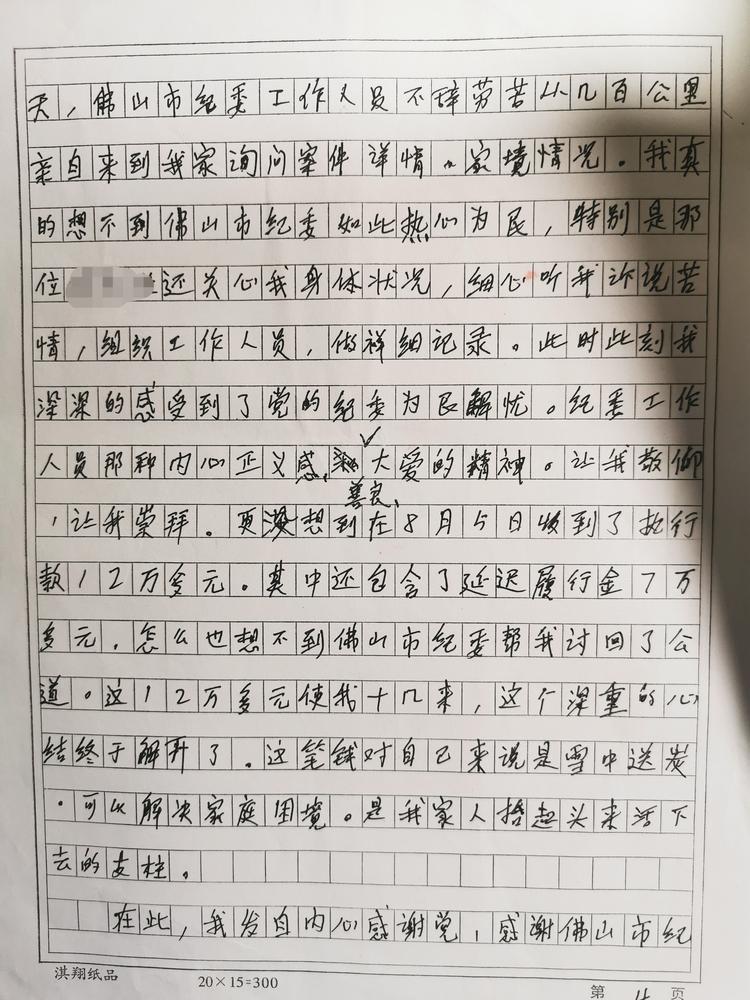 天，佛山市纪委工作人员不辞劳苦从几百公里
亲自来到我家询问案件详情。家境情况。我真
的想不到佛山市纪委如此热心为民，特别是那
位还关心我身体状况，细心听我诉说苦
情，组织工作人员，做祥细记录。此时此刻我
深深的感受到了党的纪委为民解忧。纪委工作
人员那种内心正义感、大爱的精神。让我敬仰
善良、
，让我崇拜。更没想到在8月5日收到了执行
款12万多元。其中还包含了延迟履行金7万
多元，怎么也想不到佛山市纪委帮我讨回了公
道。这12万多元使我十几来，这个深重的心
结终于解开了。这笔钱对自己来说是雪中送炭
。可以解决家庭困境。是我家人抬起头来活下
去的支柱。
在此，我发自内心感谢党，感谢佛山市纪
淇翔纸品
20×15=300
第 4 页